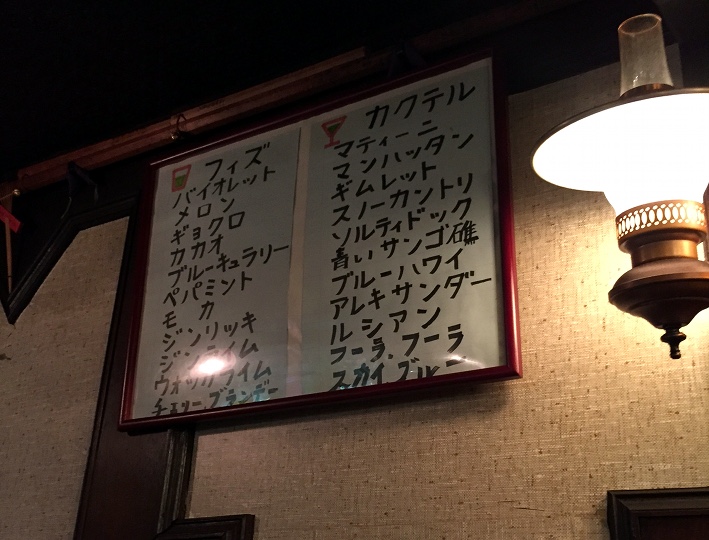 フィズ
バイオレット
メロン
ギョクロ
カカオ
ブルーキュラソー
ペパミント
モカ
ジンリッキ
ジンライム
ウォッカライム
チェリー.ブランデー
カクテル
マティーニ
マンハッタン
ギムレット
スノーカントリ
ソルティドック
青いサンゴ礁
ブルーハワイ
アレキサンダー
ルシアン
フーラ.フーラ
スカイ.ブルー